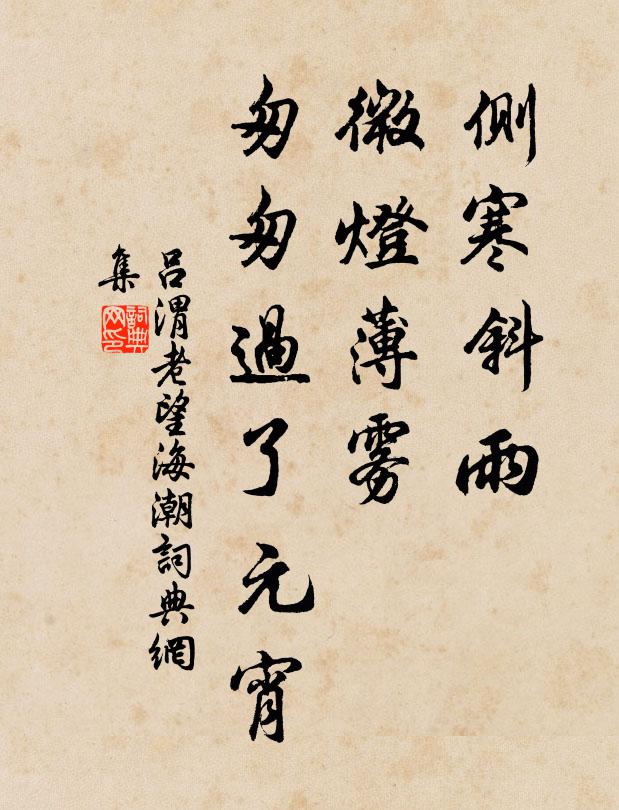 側寒斜雨
微燈薄霧
匆匆過了元宵
呂渭老望海潮詞典網
集
詞典網印